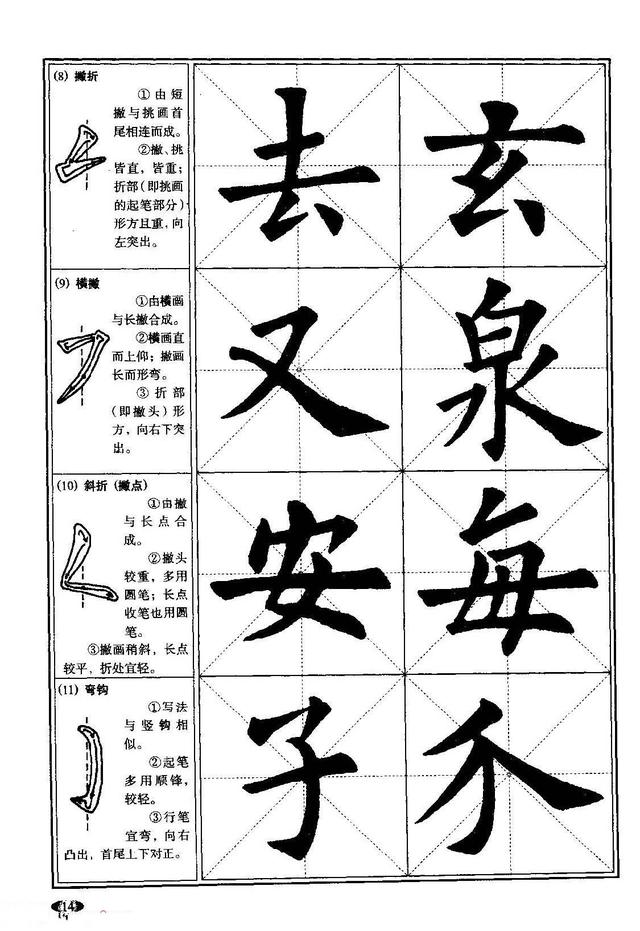 (8) 撇折
①由短
撇与挑画首
尾相连而成。
②撇、挑
皆直，皆重；
折部（即挑画
的起笔部分）
形方且重，向
左突出。
去 玄
(9) 横撇
①由横画
与长撇合成。
②横画直
而上仰；撇画
长而形弯。
③折部
（即撇头）形
方，向右下突
出。
又 泉
(10) 斜折（撇点）
①由撇
与长点合
成。
②撇头
较重，多用
圆笔；长点
收笔也用圆
笔。
③撇画稍斜，长点
较平，折处宜轻。
安 每
(11) 弯钩
①写法
与竖钩相
似。
②起笔
多用顺锋，
较轻。
③行笔
宜弯，向右
凸出，首尾上下对正。
子
14